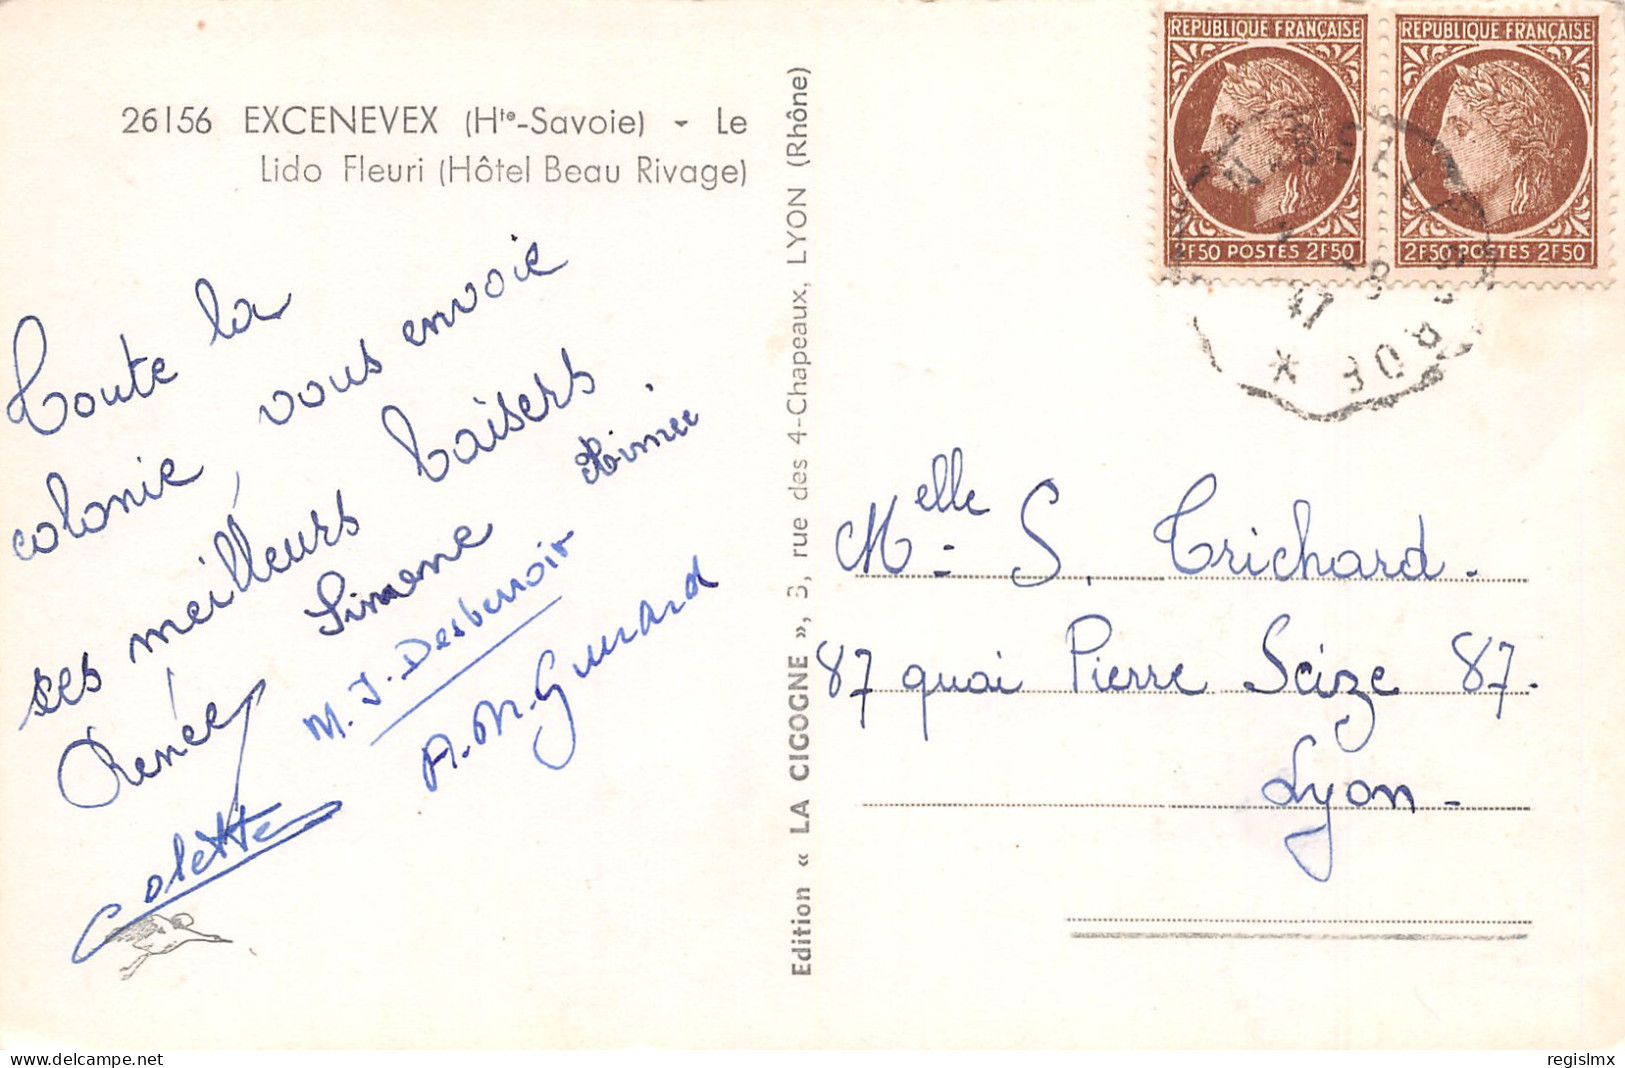 26156 EXCENEVEX (Hte-Savoie) - Le
Lido Fleuri (Hôtel Beau Rivage)
Toute la
colonie, vous envoie
ses meilleurs baisers.
Renée Simone Aimée
M. J. Desbenoit
A. M. Guinard
Colette
Edition « LA CIGOGNE », 3, rue des 4-Chapeaux, LYON (Rhône)
REPUBLIQUE FRANÇAISE
2F50 POSTES 2F50
REPUBLIQUE FRANÇAISE
2F50 POSTES 2F50
47
Melle S. Trichard.
87 quai Pierre Seize 87.
Lyon-
www.delcampe.net
regislmx